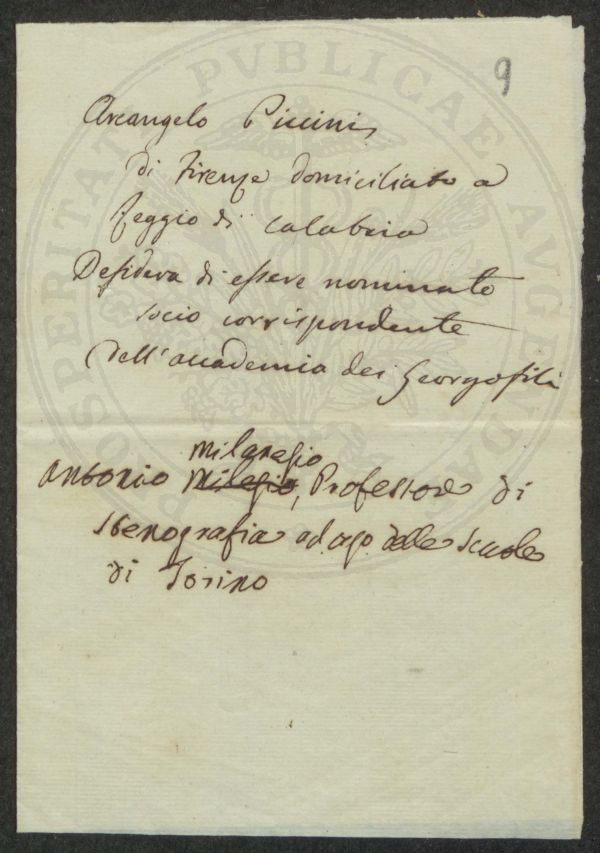 9
Arcangelo Piccini
di Firenze domiciliato a
Reggio di Calabria
Desidera di essere nominato
socio corrispondente
dell'accademia dei Georgofili
milanesio
Antonio Milesio, Professore di
stenografia ad uso delle scuole
di Torino
PROSPERITATI PVBLICAE AVGENDAE